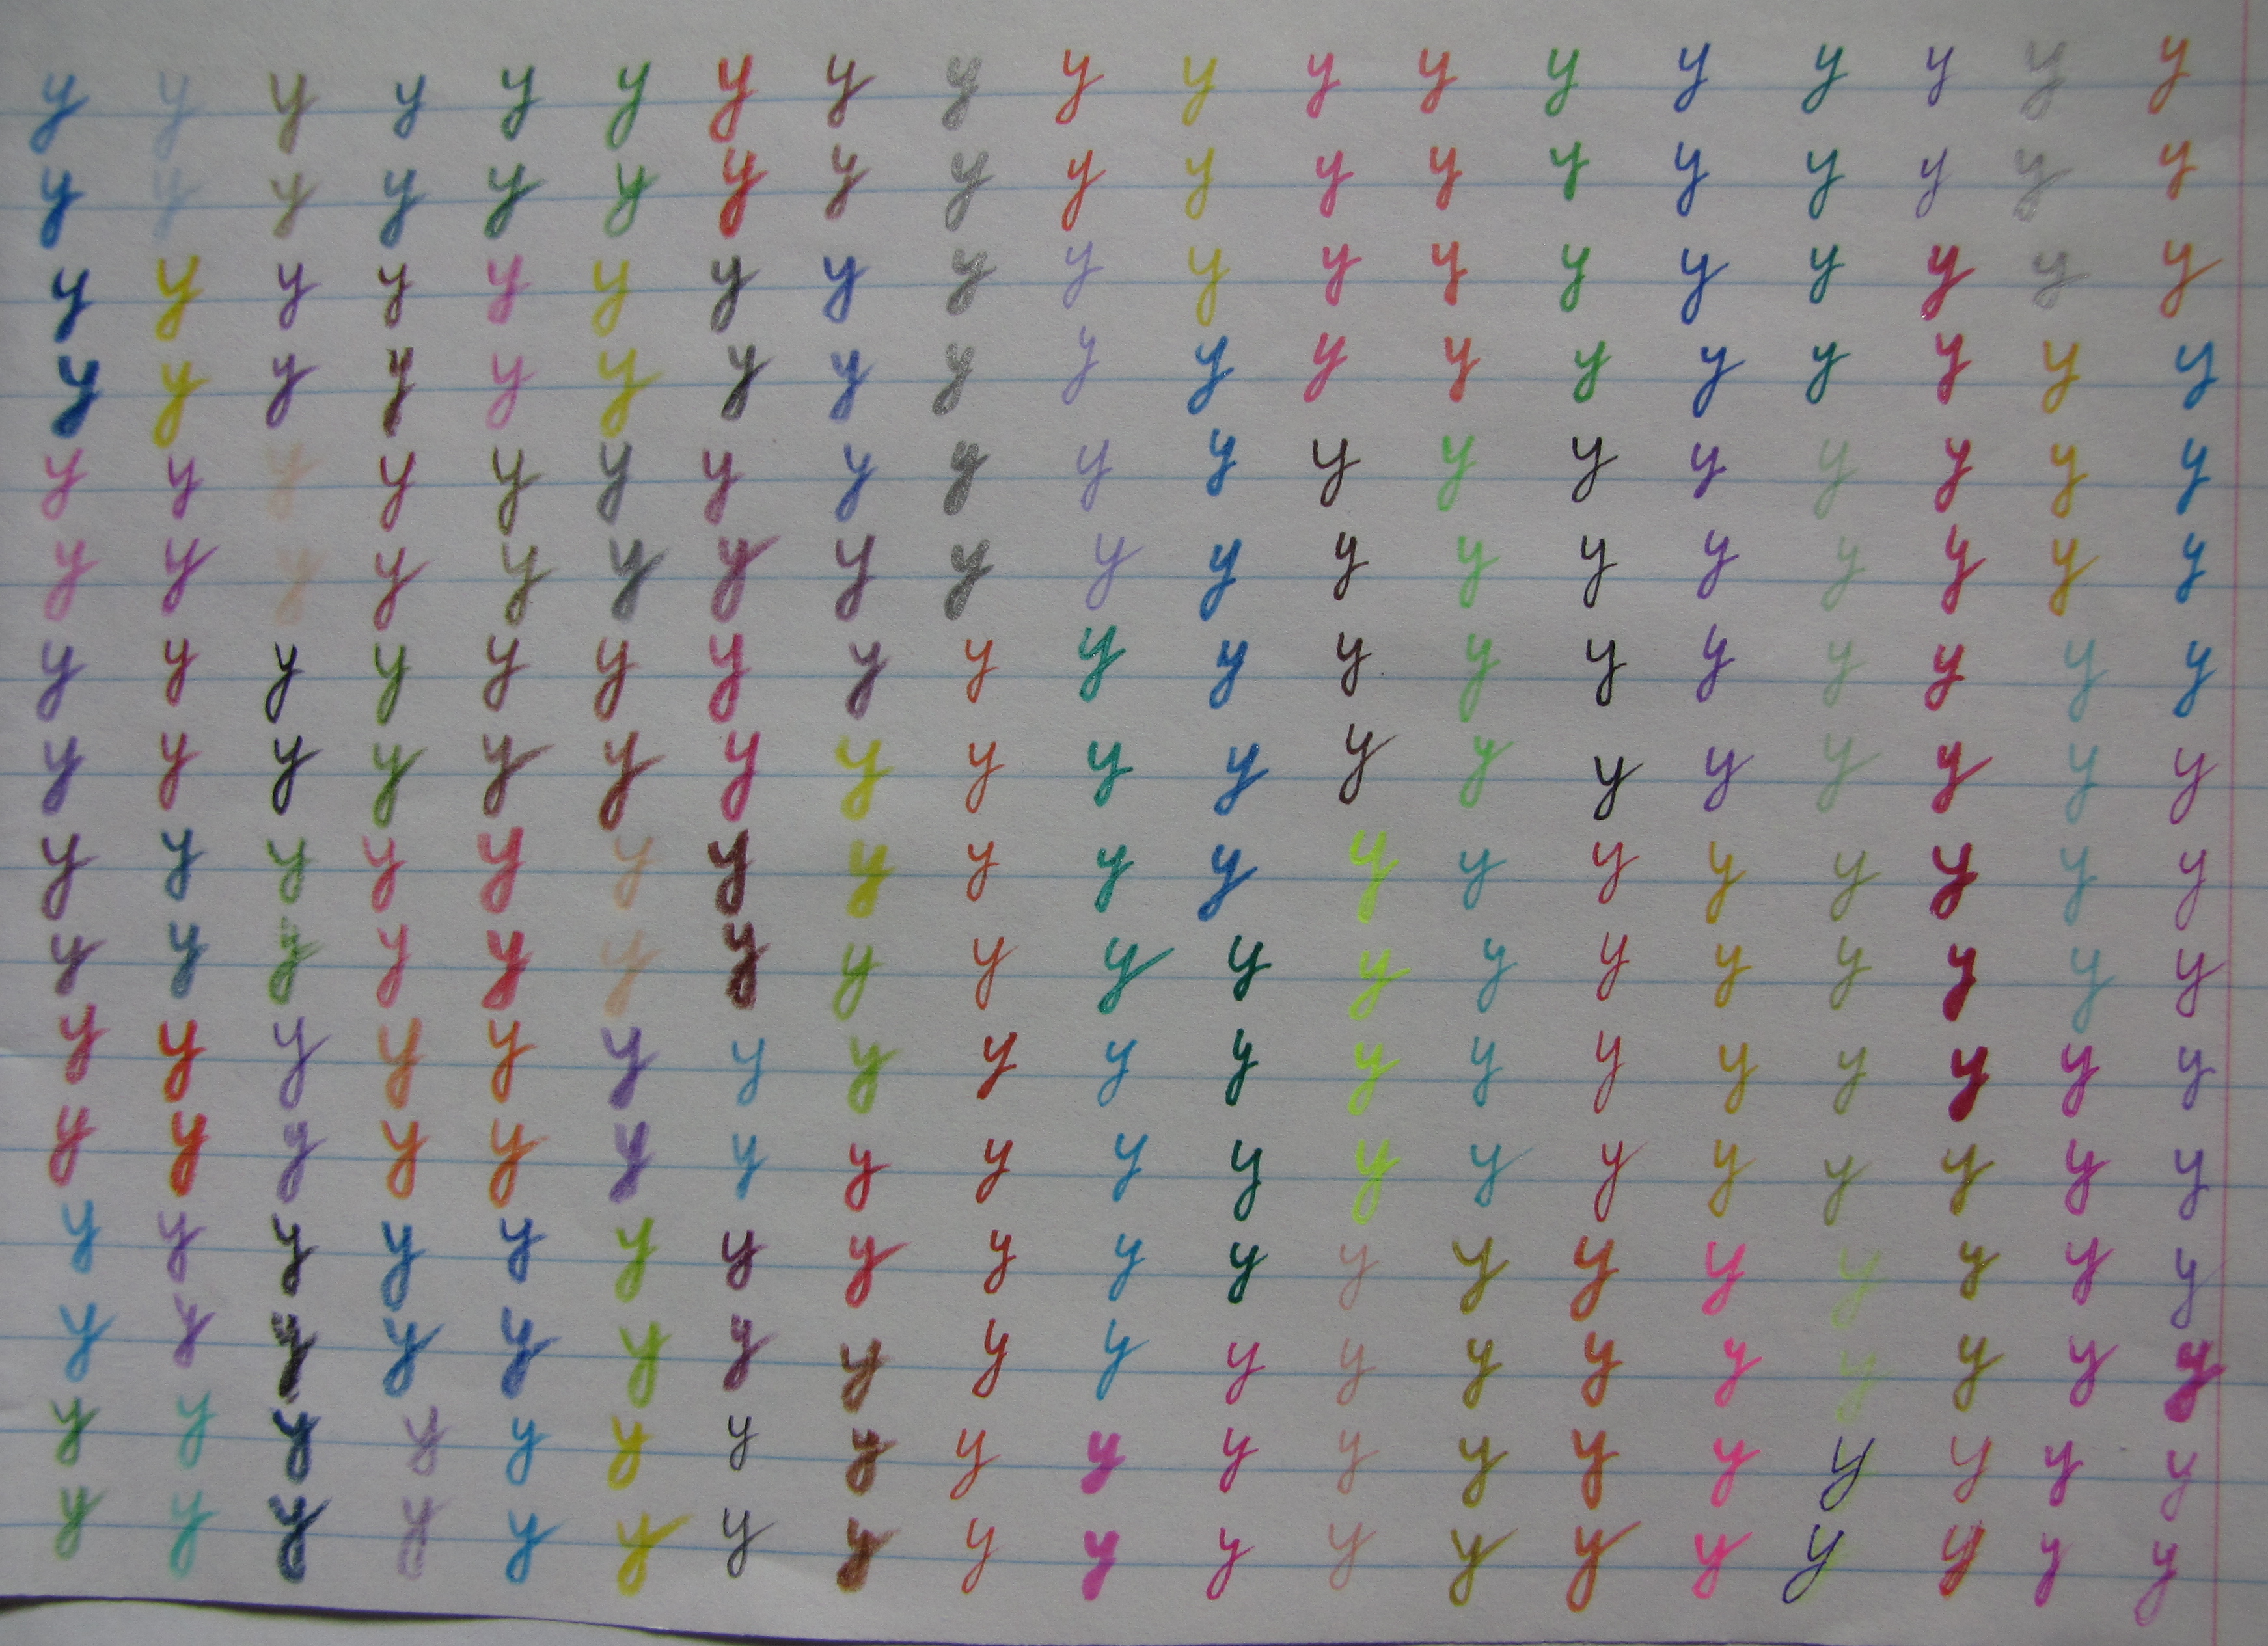 y y y y y y y y y y y y y y y y y y y
y y y y y y y y y y y y y y y y y y y
y y y y y y y y y y y y y y y y y y y
y y y y y y y y y y y y y y y y y y y
y y y y y y y y y y y y y y y y y y y
y y y y y y y y y y y y y y y y y y y
y y y y y y y y y y y y y y y y y y y
y y y y y y y y y y y y y y y y y y y
y y y y y y y y y y y y y y y y y y y
y y y y y y y y y y y y y y y y y y y
y y y y y y y y y y y y y y y y y y y
y y y y y y y y y y y y y y y y y y y
y y y y y y y y y y y y y y y y y y y
y y y y y y y y y y y y y y y y y y y
y y y y y y y y y y y y y y y y y y y
y y y y y y y y y y y y y y y y y y y